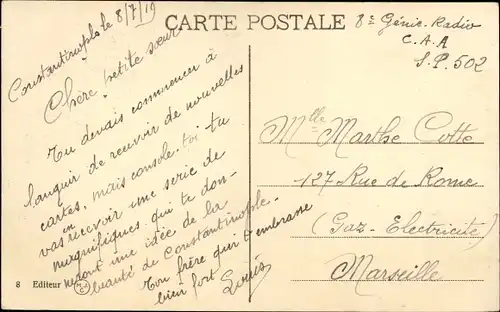 CARTE POSTALE
8e Génie. Radio
C.A.A
S.P. 502
Constantinople 8/7/19
Chère petite sœur
Tu devais commencer à
languir de recevoir de nouvelles
cartes, mais console-toi tu
vas en recevoir une serie de
magnifiques qui te don-
nedont une idée de la
beauté de Constantinople.
Ton frère qui t'embrasse
bien fort
Louis
Mlle Marthe Cotte
127 Rue de Rome
(Gaz-Electricité)
Marseille
8 Editeur